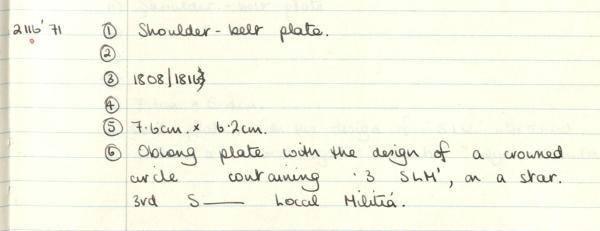 2116' 71 ① Shoulder-belt plate.
②
③ 1808/1816
④
⑤ 7.6cm. x 6.2cm.
⑥ Oblong plate with the design of a crowned
circle containing '3 SLM', on a star.
3rd S—— Local Militia.